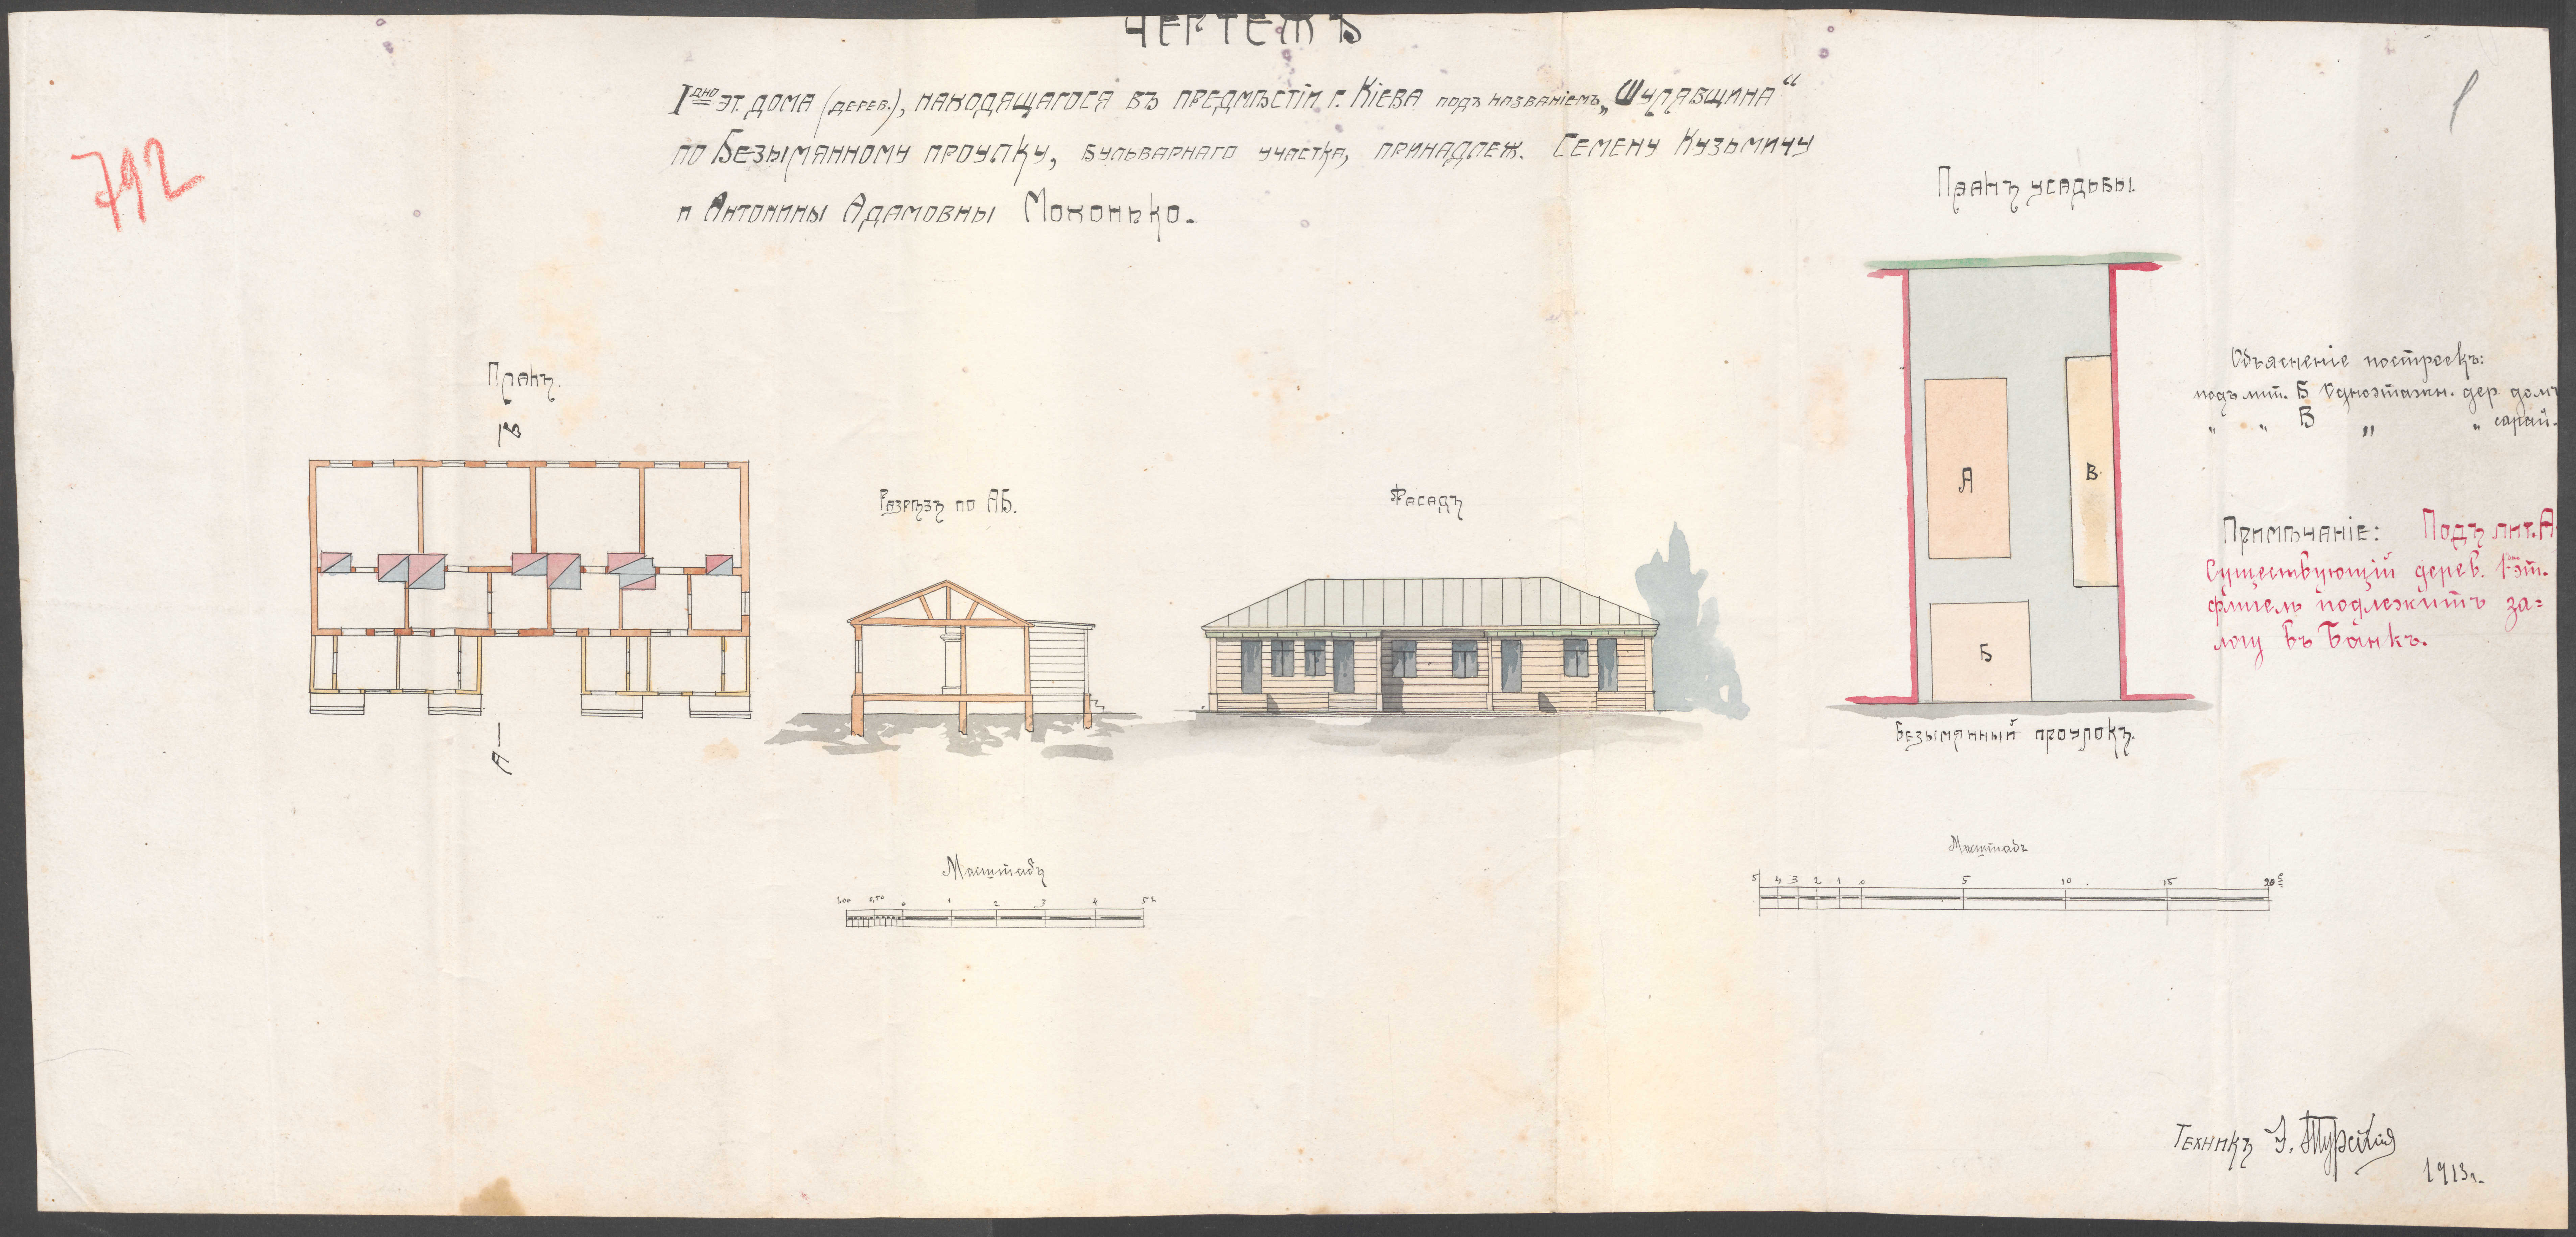 ЧЕРТЕЖЪ
Iдно эт. дома (дерев.), находящагося въ предмѣстіи г. Кіева подъ названіемъ „Шулявщина“
по Безымянному проулку, Бульварнаго участка, принадлеж. Семену Кузьмичу
и Антонины Адамовны Мохонько.
792
Планъ усадьбы.
Планъ.
Б
А
Разрѣзъ по АБ.
Фасадъ
А
В
Б
Безымянный проулокъ.
Объясненіе построекъ:
подъ лит. Б Одноэтажн. дер. домъ
„ „ В „ „ сарай.
Примѣчаніе: Подъ лит. А
Существующій дерев. 1 эт.
флигель подлежитъ за=
логу въ Банкъ.
Масштабъ
1.00 0,50 0 1 2 3 4 5 с
Масштабъ
5 4 3 2 1 0 5 10 15 20 с
Техникъ
1913 г.